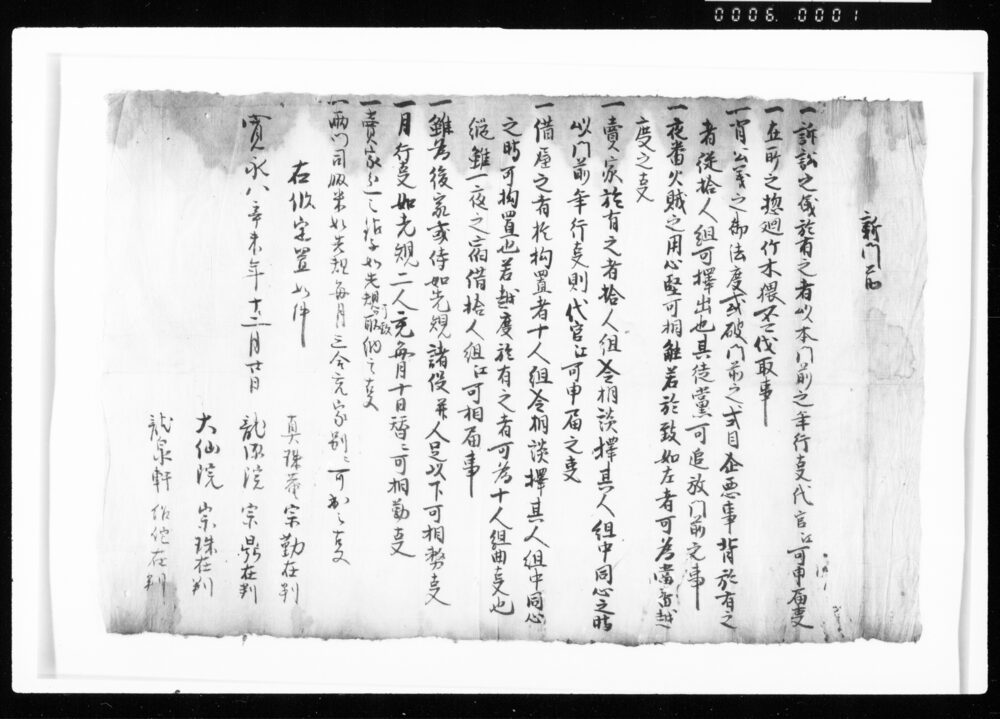 0006.0001
新門前
一訴訟之儀於有之者以本門前之年行支代官江可申届支
一在所之惣廻竹木猥不可伐取事
一背公義之御法度或破門前之式目企悪事背於有之
者従拾人組可擇出也其徒黨可追放門前之事
一夜番火賊之用心堅可相触若於致如左者可為當番越
度之支
一賣家於有之者拾人組令相談擇其人組中同心之時
以門前年行支則代官江可申届之支
一借屋之者於拘置者十人組令相談擇其人組中同心
之時可拘置也若越度於有之者可為十人組曲支也
縦雖一夜之宿借拾人組江可相届事
一雖為後家或侍如先規諸役并人足以下可相務支
一月行支如先規二人充毎月十日替ニ可相勤支
一賣家之一之如先規可致取納之支
一両門司飯米如先規毎月三合充家別ニ可出之支
右條定置如件
寛永八辛未年十二月廿日
真珠菴 宗勤在判
龍源院 宗鼎在判
大仙院 宗珠在判
龍泉軒 在判